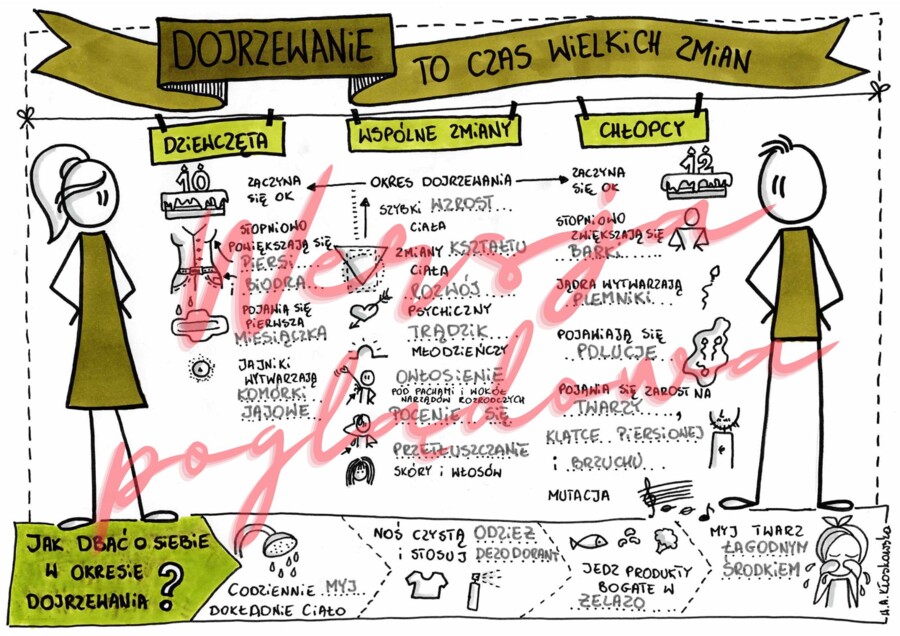 DOJRZEWANIE
TO CZAS WIELKICH ZMIAN
DZIEWCZĘTA
10
ZACZYNA
SIĘ OK
STOPNIOWO
POWIĘKSZAJĄ SIĘ
PIERSI
i BIODRA
POJAWIA SIĘ
PIERWSZA
MIESIĄCZKA
JAJNIKI
WYTWARZAJĄ
KOMÓRKI
JAJOWE
WSPÓLNE ZMIANY
OKRES DOJRZEWANIA
SZYBKI WZROST
CIAŁA
ZMIANY KSZTAŁTU
CIAŁA
ROZWÓJ
PSYCHICZNY
TRĄDZIK
MŁODZIEŃCZY
OWŁOSIENIE
POD PACHAMI i WOKÓŁ
NARZĄDÓW ROZRODCZYCH
POCENIE SIĘ
PRZETŁUSZCZANIE
SKÓRY i WŁOSÓW
CHŁOPCY
ZACZYNA
SIĘ OK
12
STOPNIOWO
ZWIĘKSZAJĄ SIĘ
BARKI
JĄDRA WYTWARZAJĄ
PLEMNIKI
POJAWIAJĄ SIĘ
POLUCJE
POJAWIA SIĘ ZAROST NA
TWARZY,
KLATCE PIERSIOWEJ
i BRZUCHU
MUTACJA
Wersja
poglądowa
JAK DBAĆ O SIEBIE
W OKRESIE
DOJRZEWANIA ?
CODZIENNIE MYJ
DOKŁADNIE CIAŁO
NOŚ CZYSTĄ ODZIEŻ
i STOSUJ DEZODORANT
JEDZ PRODUKTY
BOGATE W
ŻELAZO
MYJ TWARZ
ŁAGODNYM
ŚRODKIEM
A.A. Kłoskowska